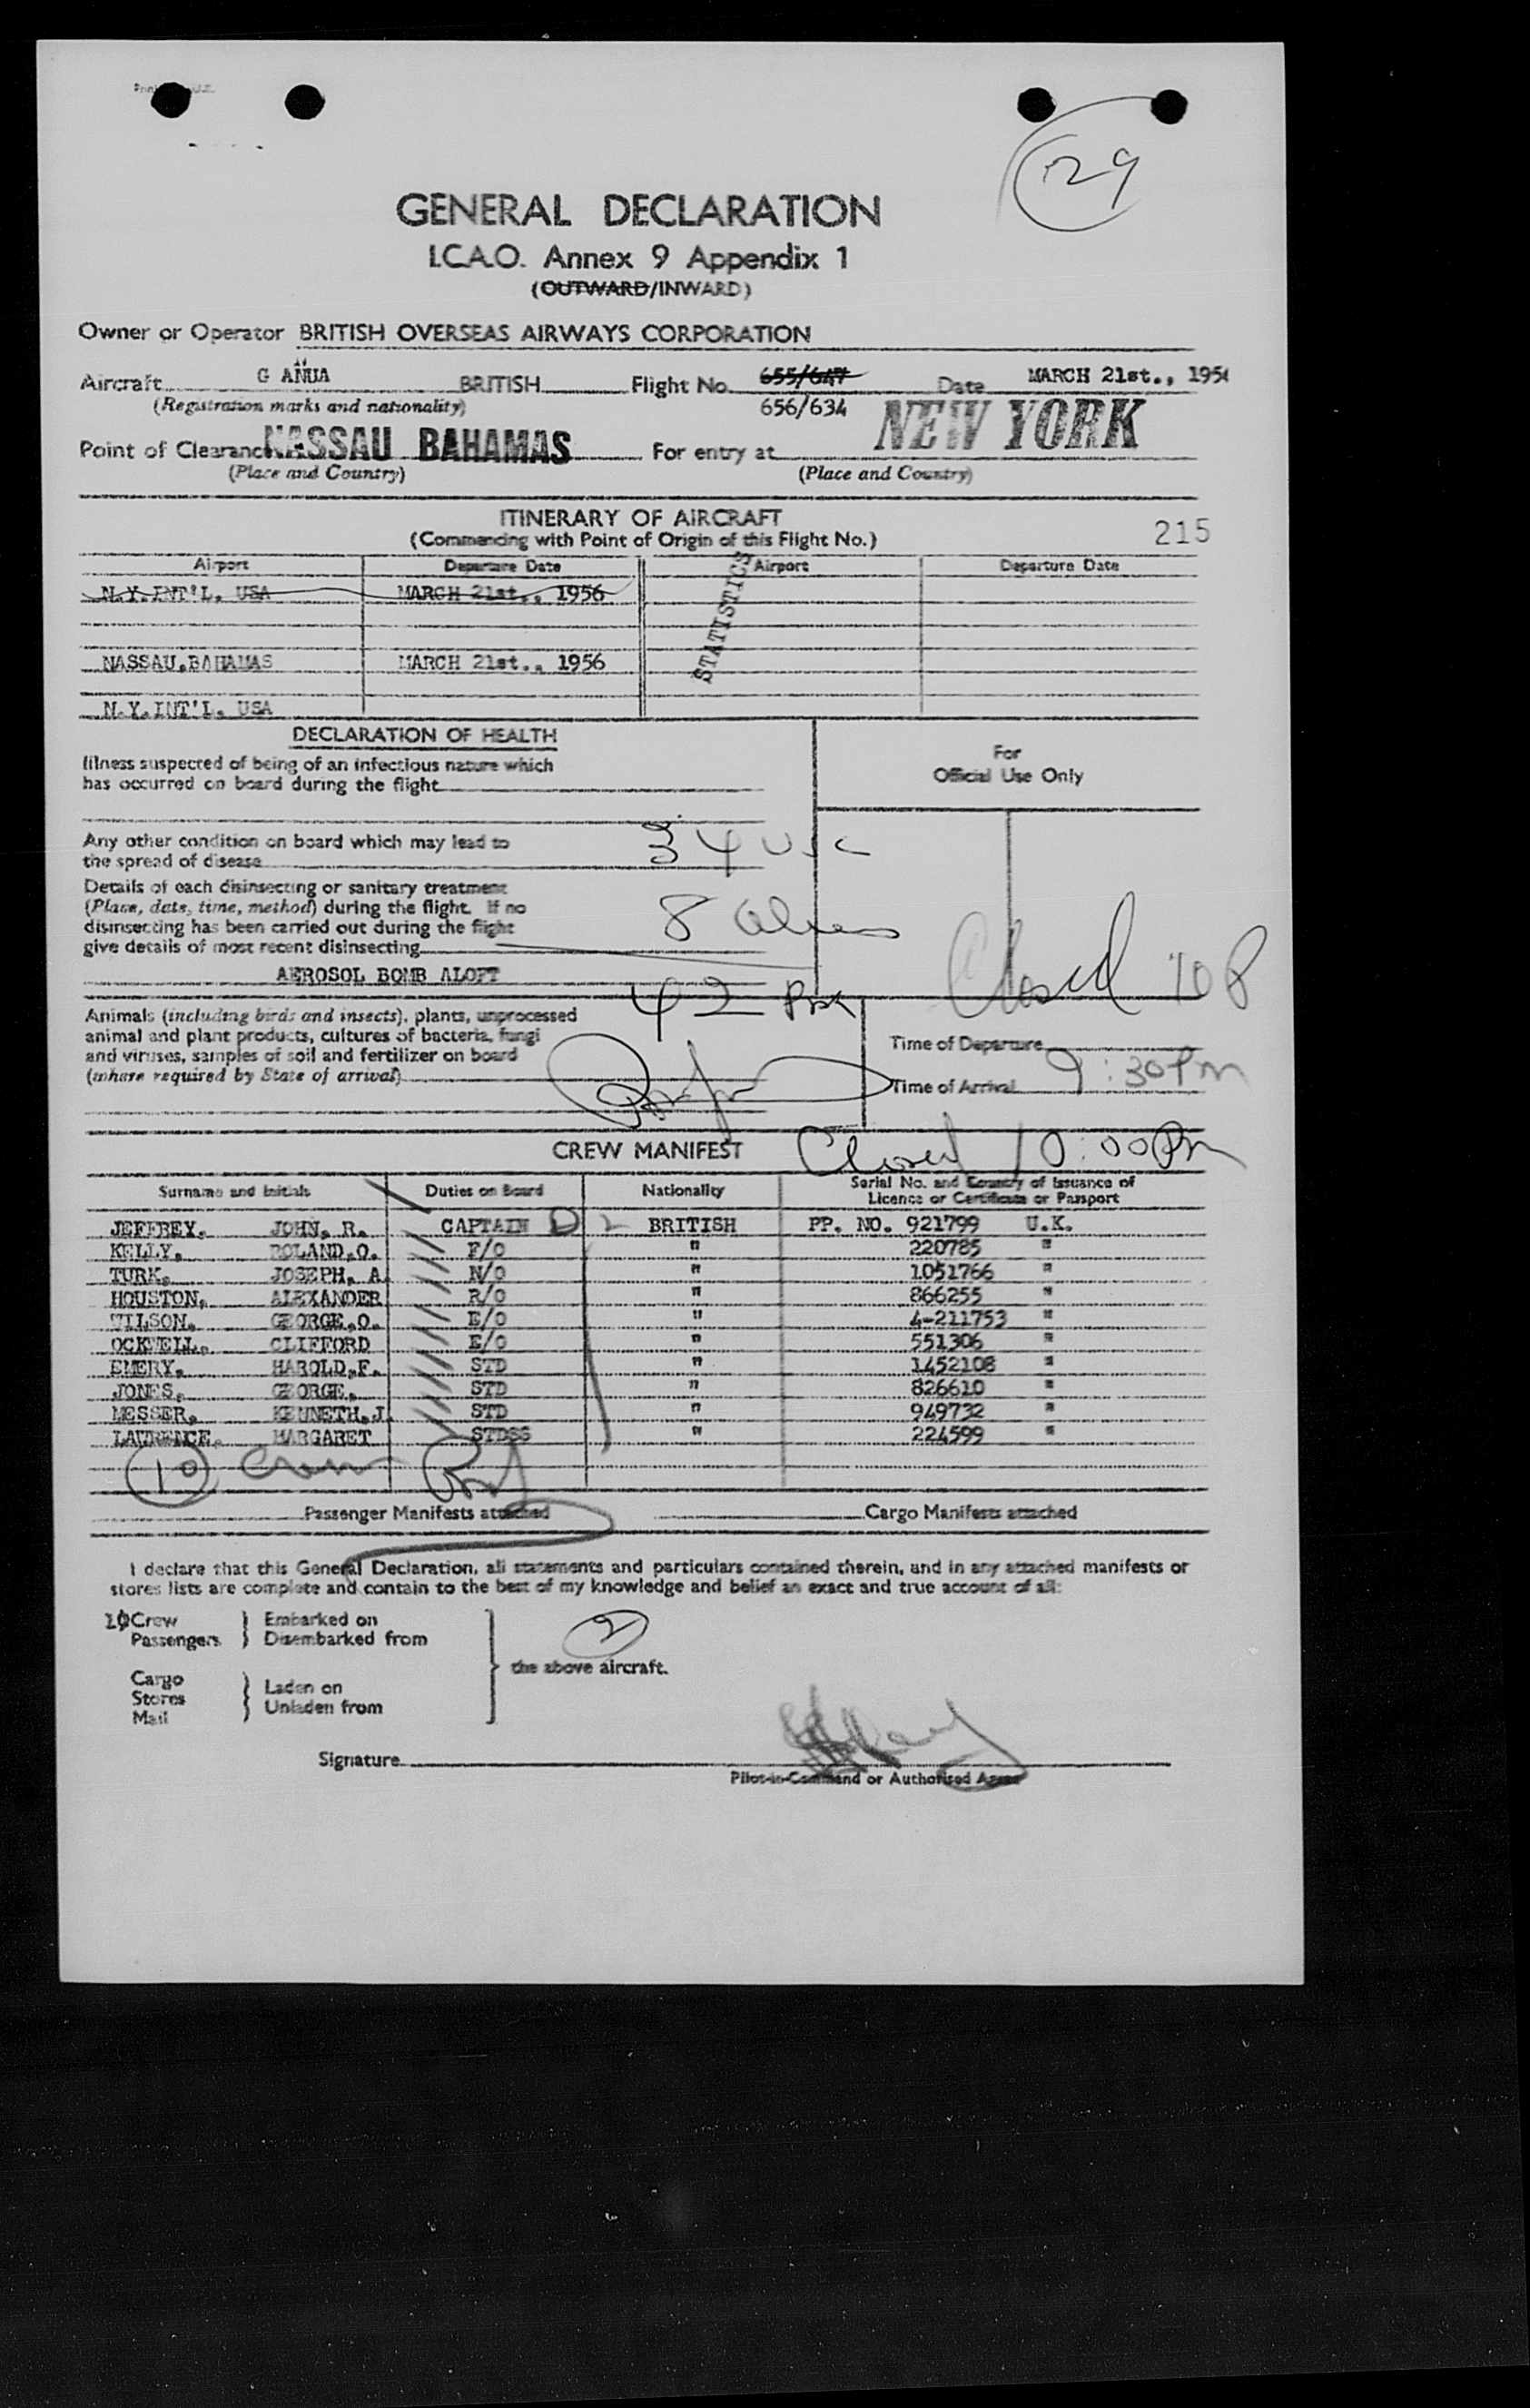 29
GENERAL DECLARATION
I.C.A.O. Annex 9 Appendix 1
(OUTWARD/INWARD)
Owner or Operator BRITISH OVERSEAS AIRWAYS CORPORATION
Aircraft G BRITISH Flight No. 655/647 Date MARCH 21st., 195
(Registration marks and nationality) 656/634
Point of Clearance NASSAU BAHAMAS For entry at NEW YORK
(Place and Country) (Place and Country)
ITINERARY OF AIRCRAFT
(Commencing with Point of Origin of this Flight No.) 215
Airport Departure Date Airport Departure Date
N.Y.INT'L. USA MARCH 21st., 1956
STATISTICS
NASSAU.BAHAMAS MARCH 21st., 1956
N.Y.INT'L. USA
DECLARATION OF HEALTH
For
Official Use Only
Illness suspected of being of an infectious nature which
has occurred on board during the flight
Any other condition on board which may lead to
the spread of disease
34 USC
Details of each disinsecting or sanitary treatment
(Place, date, time, method) during the flight. If no
disinsecting has been carried out during the flight
give details of most recent disinsecting
8 aliens
AEROSOL BOMB ALOFT
Closed 10 P
42
Animals (including birds and insects), plants, unprocessed
animal and plant products, cultures of bacteria, fungi
and viruses, samples of soil and fertilizer on board
(where required by State of arrival)
Time of Departure
Time of Arrival 9:30 Pm
CREW MANIFEST Closed 10:00 Pm
Surname and Initials Duties on Board Nationality Serial No. and Country of Issuance of
Licence or Certificate or Passport
JEFFREY. JOHN. R. CAPTAIN D 2 BRITISH PP. NO. 921799 U.K.
KELLY. ROLAND.O. F/O " 220785 "
TURK. JOSEPH. A. N/O " 1051766 "
HOUSTON. ALEXANDER R/O " 866255 "
WILSON. GEORGE.O. E/O " 4-211753 "
OCKWELL. CLIFFORD E/O " 551306 "
EMERY. HAROLD.F. STD " 1452108 "
JONES. GEORGE. STD " 826610 "
MESSER. KENNETH.J. STD " 949732 "
LAWRENCE. MARGARET STDSS " 224599 "
10 Crew
Passenger Manifests attached Cargo Manifests attached
I declare that this General Declaration, all statements and particulars contained therein, and in any attached manifests or
stores lists are complete and contain to the best of my knowledge and belief an exact and true account of all:
10 Crew } Embarked on
Passengers } Disembarked from
2
the above aircraft.
Cargo
Stores } Laden on
Mail } Unladen from
Signature
Pilot-in-Command or Authorised Agent